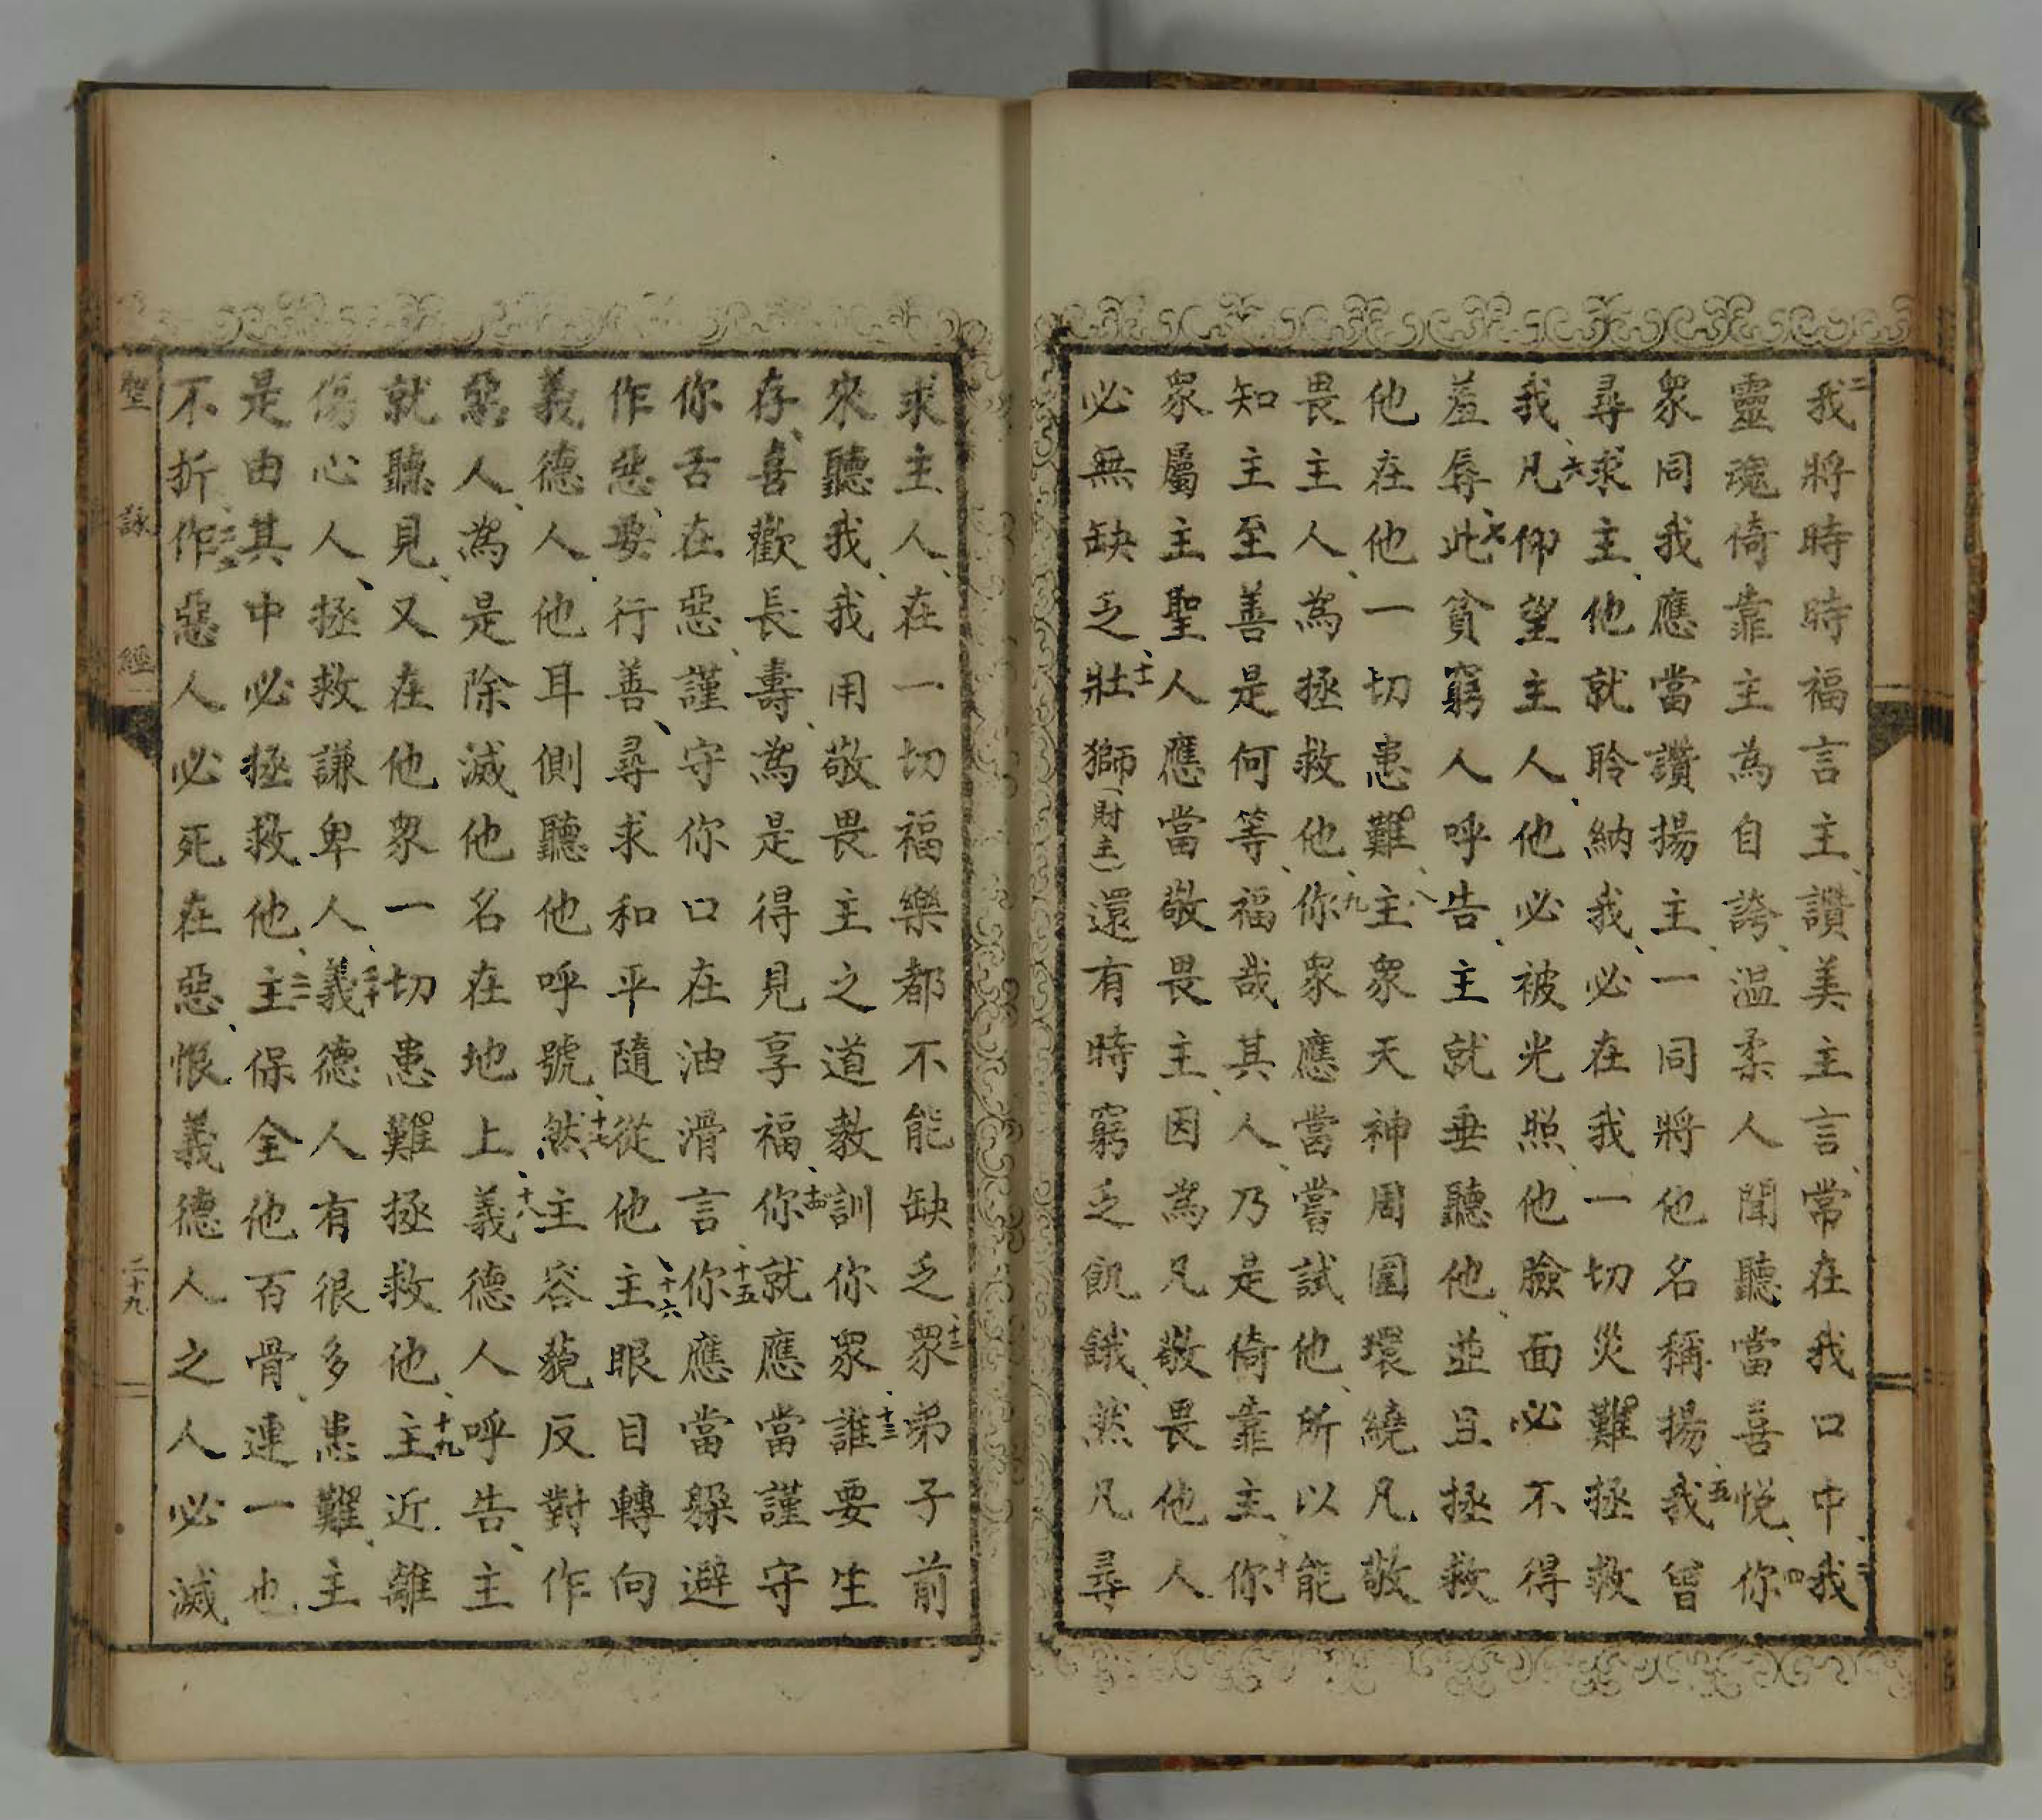 二我將時時福言主、讚美主言、常在我口中、三我
靈魂倚靠主為自誇、溫柔人聞聽當喜悅、四你
衆同我應當讚揚主、一同將他名稱揚、五我曾
尋求主、他就聆納我、必在我一切災難拯救
我、六凡仰望主人、他必被光照、他臉面必不得
羞辱、七此貧窮人呼告、主就垂聽他、並且拯救
他在他一切患難。八主衆天神周圍環繞凡敬
畏主人、為拯救他、九你衆應當嘗試他、所以能
知主至善是何等、福哉其人、乃是倚靠主、十你
衆屬主聖人應當敬畏主、因為凡敬畏他人
必無缺乏、十一壯獅(財主)還有時窮乏飢餓、然凡尋
求主人、在一切福樂都不能缺乏、十二衆弟子前
來聽我、我用敬畏主之道教訓你衆、十三誰要生
存、喜歡長壽、為是得見享福、十四你就應當謹守
你舌在惡、謹守你口在油滑言、十五你應當躱避
作惡、要行善、尋求和平隨從他、十六主眼目轉向
義德人、他耳側聽他呼號、十七然主容貌反對作
惡人、為是除滅他名在地上、十八義德人呼告、主
就聽見、又在他衆一切患難拯救他、十九主近離
傷心人、拯救謙卑人、二十義德人有很多患難、主
是由其中必拯救他、二一主保全他百骨、連一也
不折、二二作惡人必死在惡、恨義德人之人必滅
聖詠經
二十九